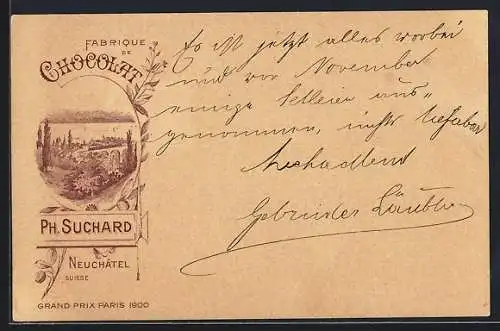 FABRIQUE
DE
CHOCOLAT
PH. SUCHARD
NEUCHÂTEL
SUISSE
GRAND PRIX PARIS 1900
Es ist jetzt alles vorbei
und vor November
einige aus=
genommen, nicht lieferbar
Gebrüder